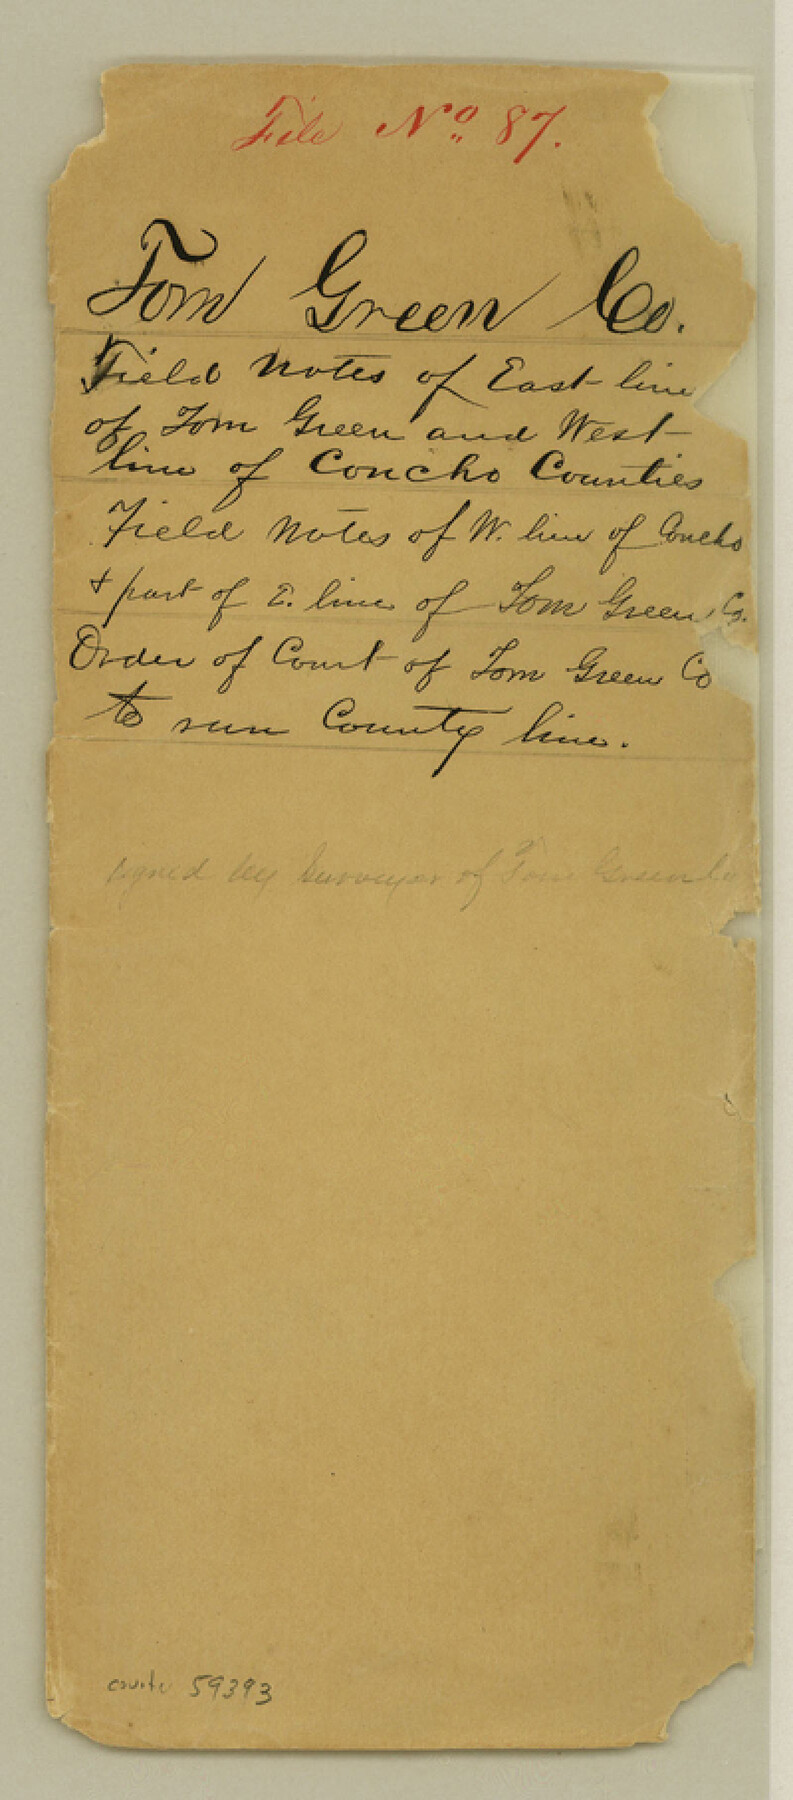 File No. 87.
Tom Green Co.
Field Notes of East line
of Tom Green and West
line of Concho Counties
Field Notes of W. line of Concho
+ part of E. line of Tom Green Co.
Order of Court of Tom Green Co
to run County line.
signed by Surveyor of Tom Green Co
59393